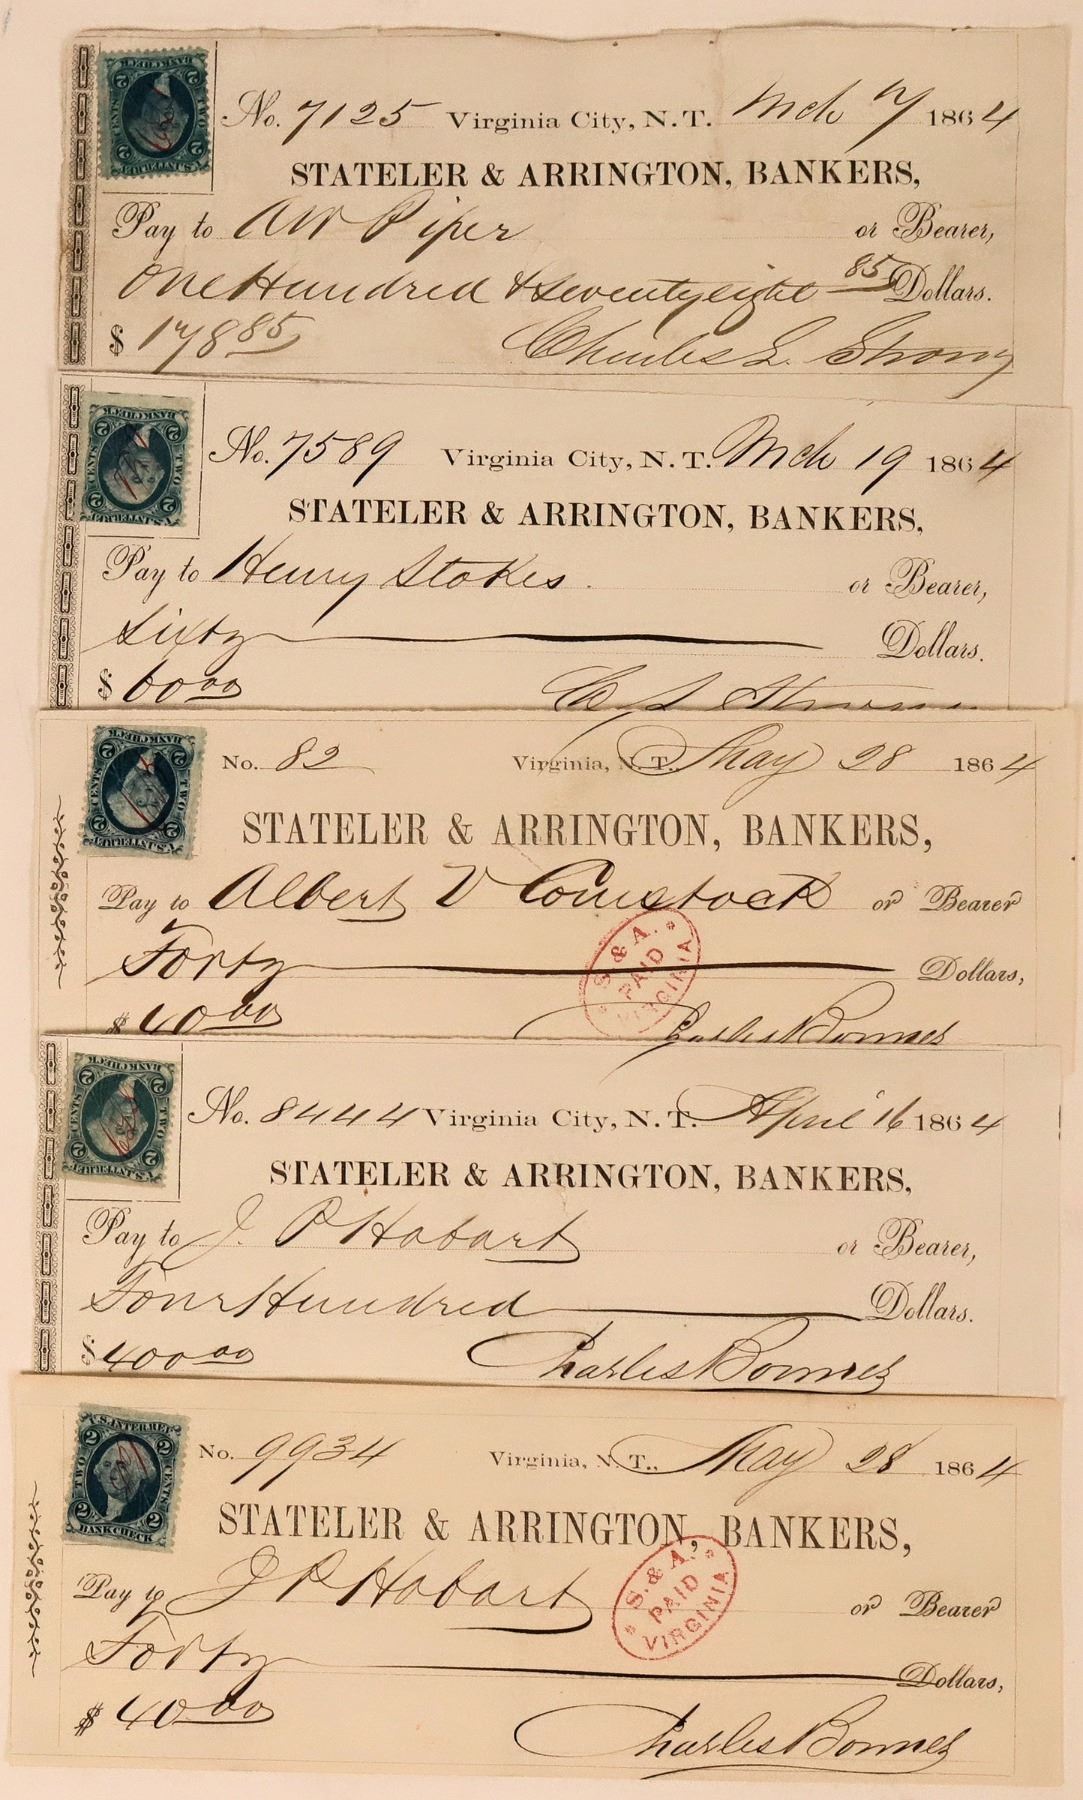 No. 7125 Virginia City, N.T. Mch 7 1864
STATELER & ARRINGTON, BANKERS,
Pay to AW Piper or Bearer,
One Hundred & seventyeight 85 Dollars.
$ 178 85 Charles L. Strong
U.S. INTER. REV. TWO CENTS BANK CHECK 2 2 2 2
No. 7589 Virginia City, N.T. Mch 19 1864
STATELER & ARRINGTON, BANKERS,
Pay to Henry Stokes. or Bearer,
Sixty Dollars.
$ 60 00 C L Strong
U.S. INTER. REV. TWO CENTS BANK CHECK 2 2 2 2
No. 82 Virginia, N.T., May 28 1864
STATELER & ARRINGTON, BANKERS,
Pay to Albert V Comstock or Bearer
Forty Dollars,
$ 40 00 Charles Bonner
S. & A. PAID VIRGINIA
U.S. INTER. REV. TWO CENTS BANK CHECK 2 2 2 2
No. 8444 Virginia City, N.T. April 16 1864
STATELER & ARRINGTON, BANKERS,
Pay to J. P Hobart or Bearer,
Four Hundred Dollars.
$ 400 00 Charles Bonner
U.S. INTER. REV. TWO CENTS BANK CHECK 2 2 2 2
No. 9934 Virginia, N.T., May 28 1864
STATELER & ARRINGTON, BANKERS,
Pay to J P Hobart or Bearer
Forty Dollars,
$ 40 00 Charles Bonner
S. & A. PAID VIRGINIA
U.S. INTER. REV. TWO CENTS BANK CHECK 2 2 2 2